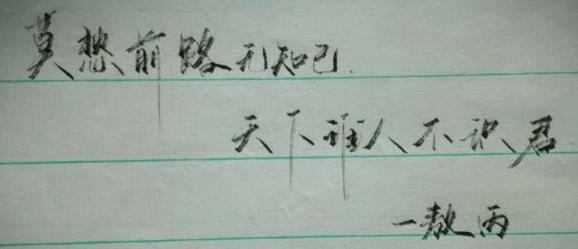 莫愁前路无知己.
天下谁人不识君
一敖丙